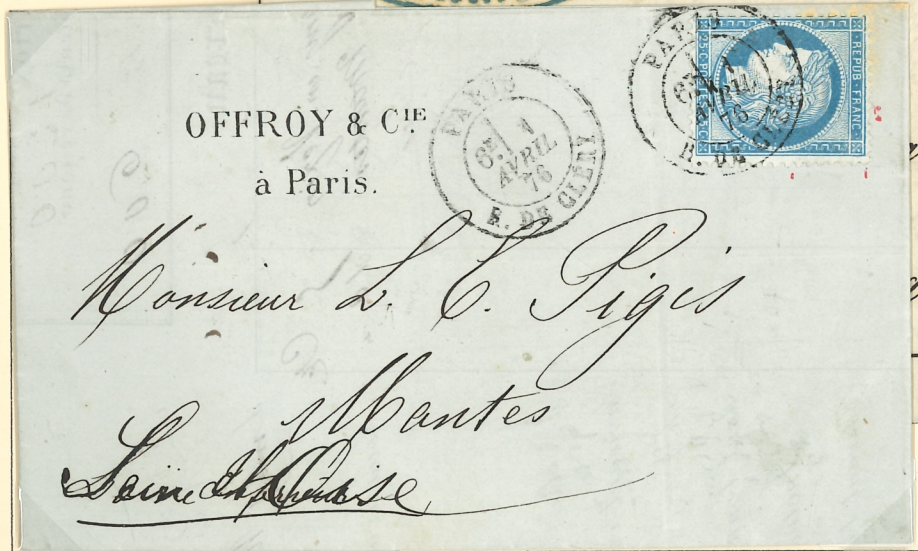 OFFROY & CIE
à Paris.
PARIS
6E 1
AVRIL
76
R. DE CLERY
PARIS
6E 1
AVRIL
76
R. DE CLERY
REPUB · FRANC
25 C POSTES 25 C
Monsieur L. E. Pigis
Mantes
Seine & Oise